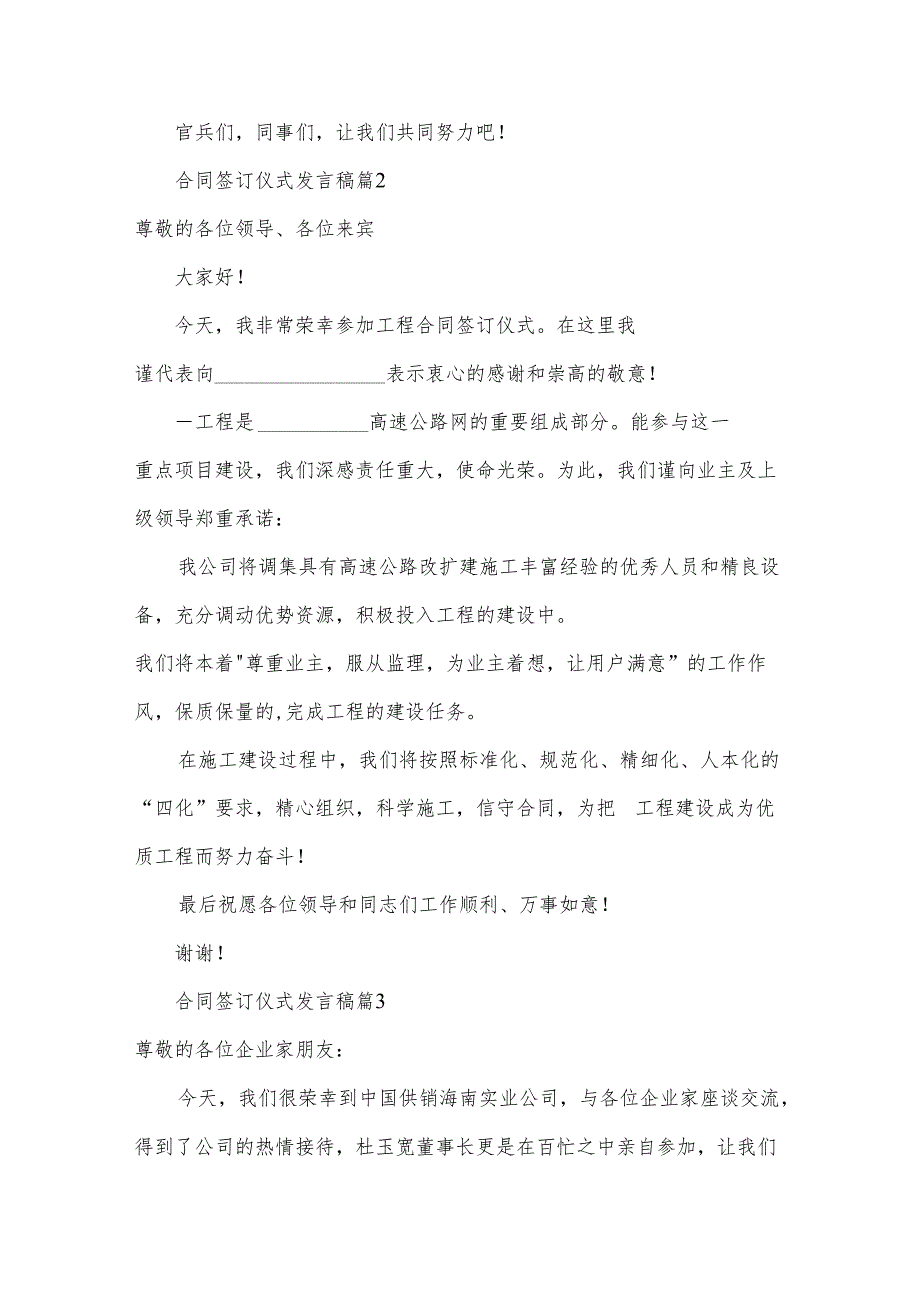 官兵们，同事们，让我们共同努力吧！
合同签订仪式发言稿篇2
尊敬的各位领导、各位来宾
大家好！
今天，我非常荣幸参加工程合同签订仪式。在这里我
谨代表向_________________表示衷心的感谢和崇高的敬意！
－工程是 ___________高速公路网的重要组成部分。能参与这一
重点项目建设，我们深感责任重大，使命光荣。为此，我们谨向业主及上
级领导郑重承诺：
我公司将调集具有高速公路改扩建施工丰富经验的优秀人员和精良设
备，充分调动优势资源，积极投入工程的建设中。
我们将本着"尊重业主，服从监理，为业主着想，让用户满意”的工作作
风，保质保量的,完成工程的建设任务。
在施工建设过程中，我们将按照标准化、规范化、精细化、人本化的
“四化”要求，精心组织，科学施工，信守合同，为把　工程建设成为优
质工程而努力奋斗！
最后祝愿各位领导和同志们工作顺利、万事如意！
谢谢！
合同签订仪式发言稿篇3
尊敬的各位企业家朋友：
今天，我们很荣幸到中国供销海南实业公司，与各位企业家座谈交流，
得到了公司的热情接待，杜玉宽董事长更是在百忙之中亲自参加，让我们